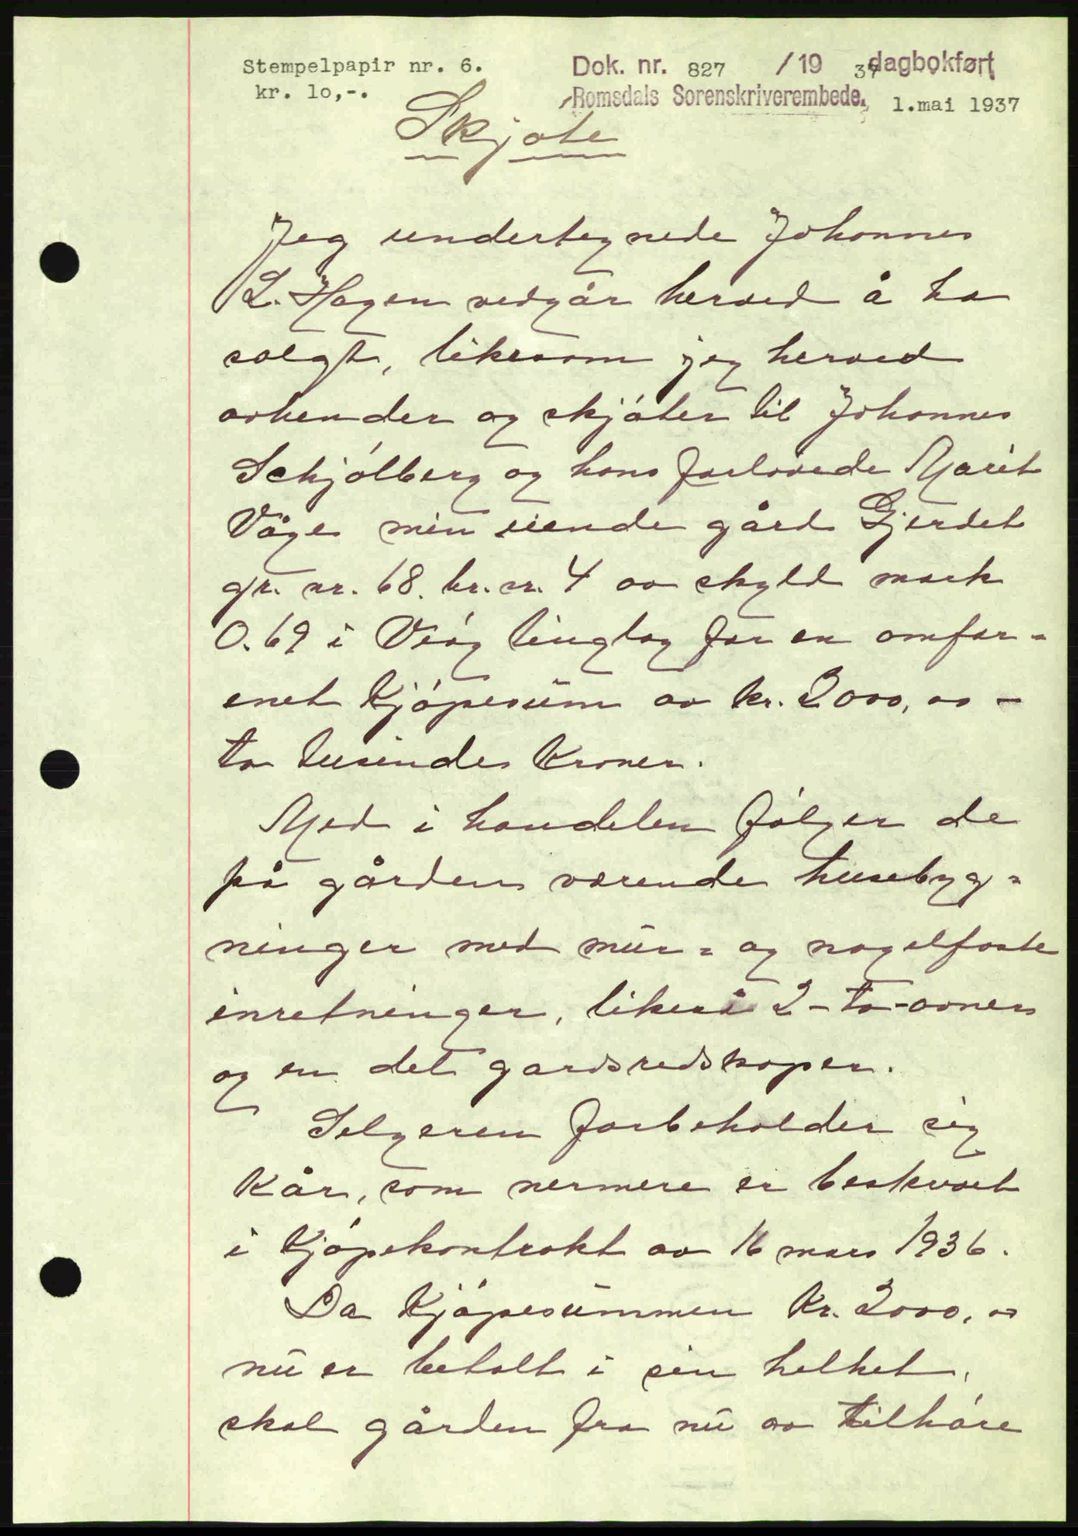 Stempelpapir nr. 6.
kr. 1o,-.
Dok. nr. 827 / 19 37 dagbokført
Romsdals Sorenskriverembede. 1.mai 1937
Skjøte
Jeg undertegnede Johannes
L. Hagen vedgår herved å ha
solgt, likesom jeg herved
avhender og skjöter til Johannes
Schjölberg og hans forlovede Marit
Våge min eiende gård Gjerdet
gr. nr. 68. br. nr. 4 av skyld mark
0.69 i Veöy tinglag for en omfor-
enet kjöpesum av kr. 2000,00 -
to tusindes kroner.
Med i handelen fölger de
på gården værende husebyg-
ninger med mur- og nagelfaste
inretninger, likeså 2 - to - ovner
og en del gardsredskaper.
Selgeren forbeholder sig
kår, som nermere er beskrevet
i kjöpekontrakt av 16 mars 1936.
Da kjöpesummen kr. 2000,00
nu er betalt i sin helhet,
skal gården fra nu av tilhöre